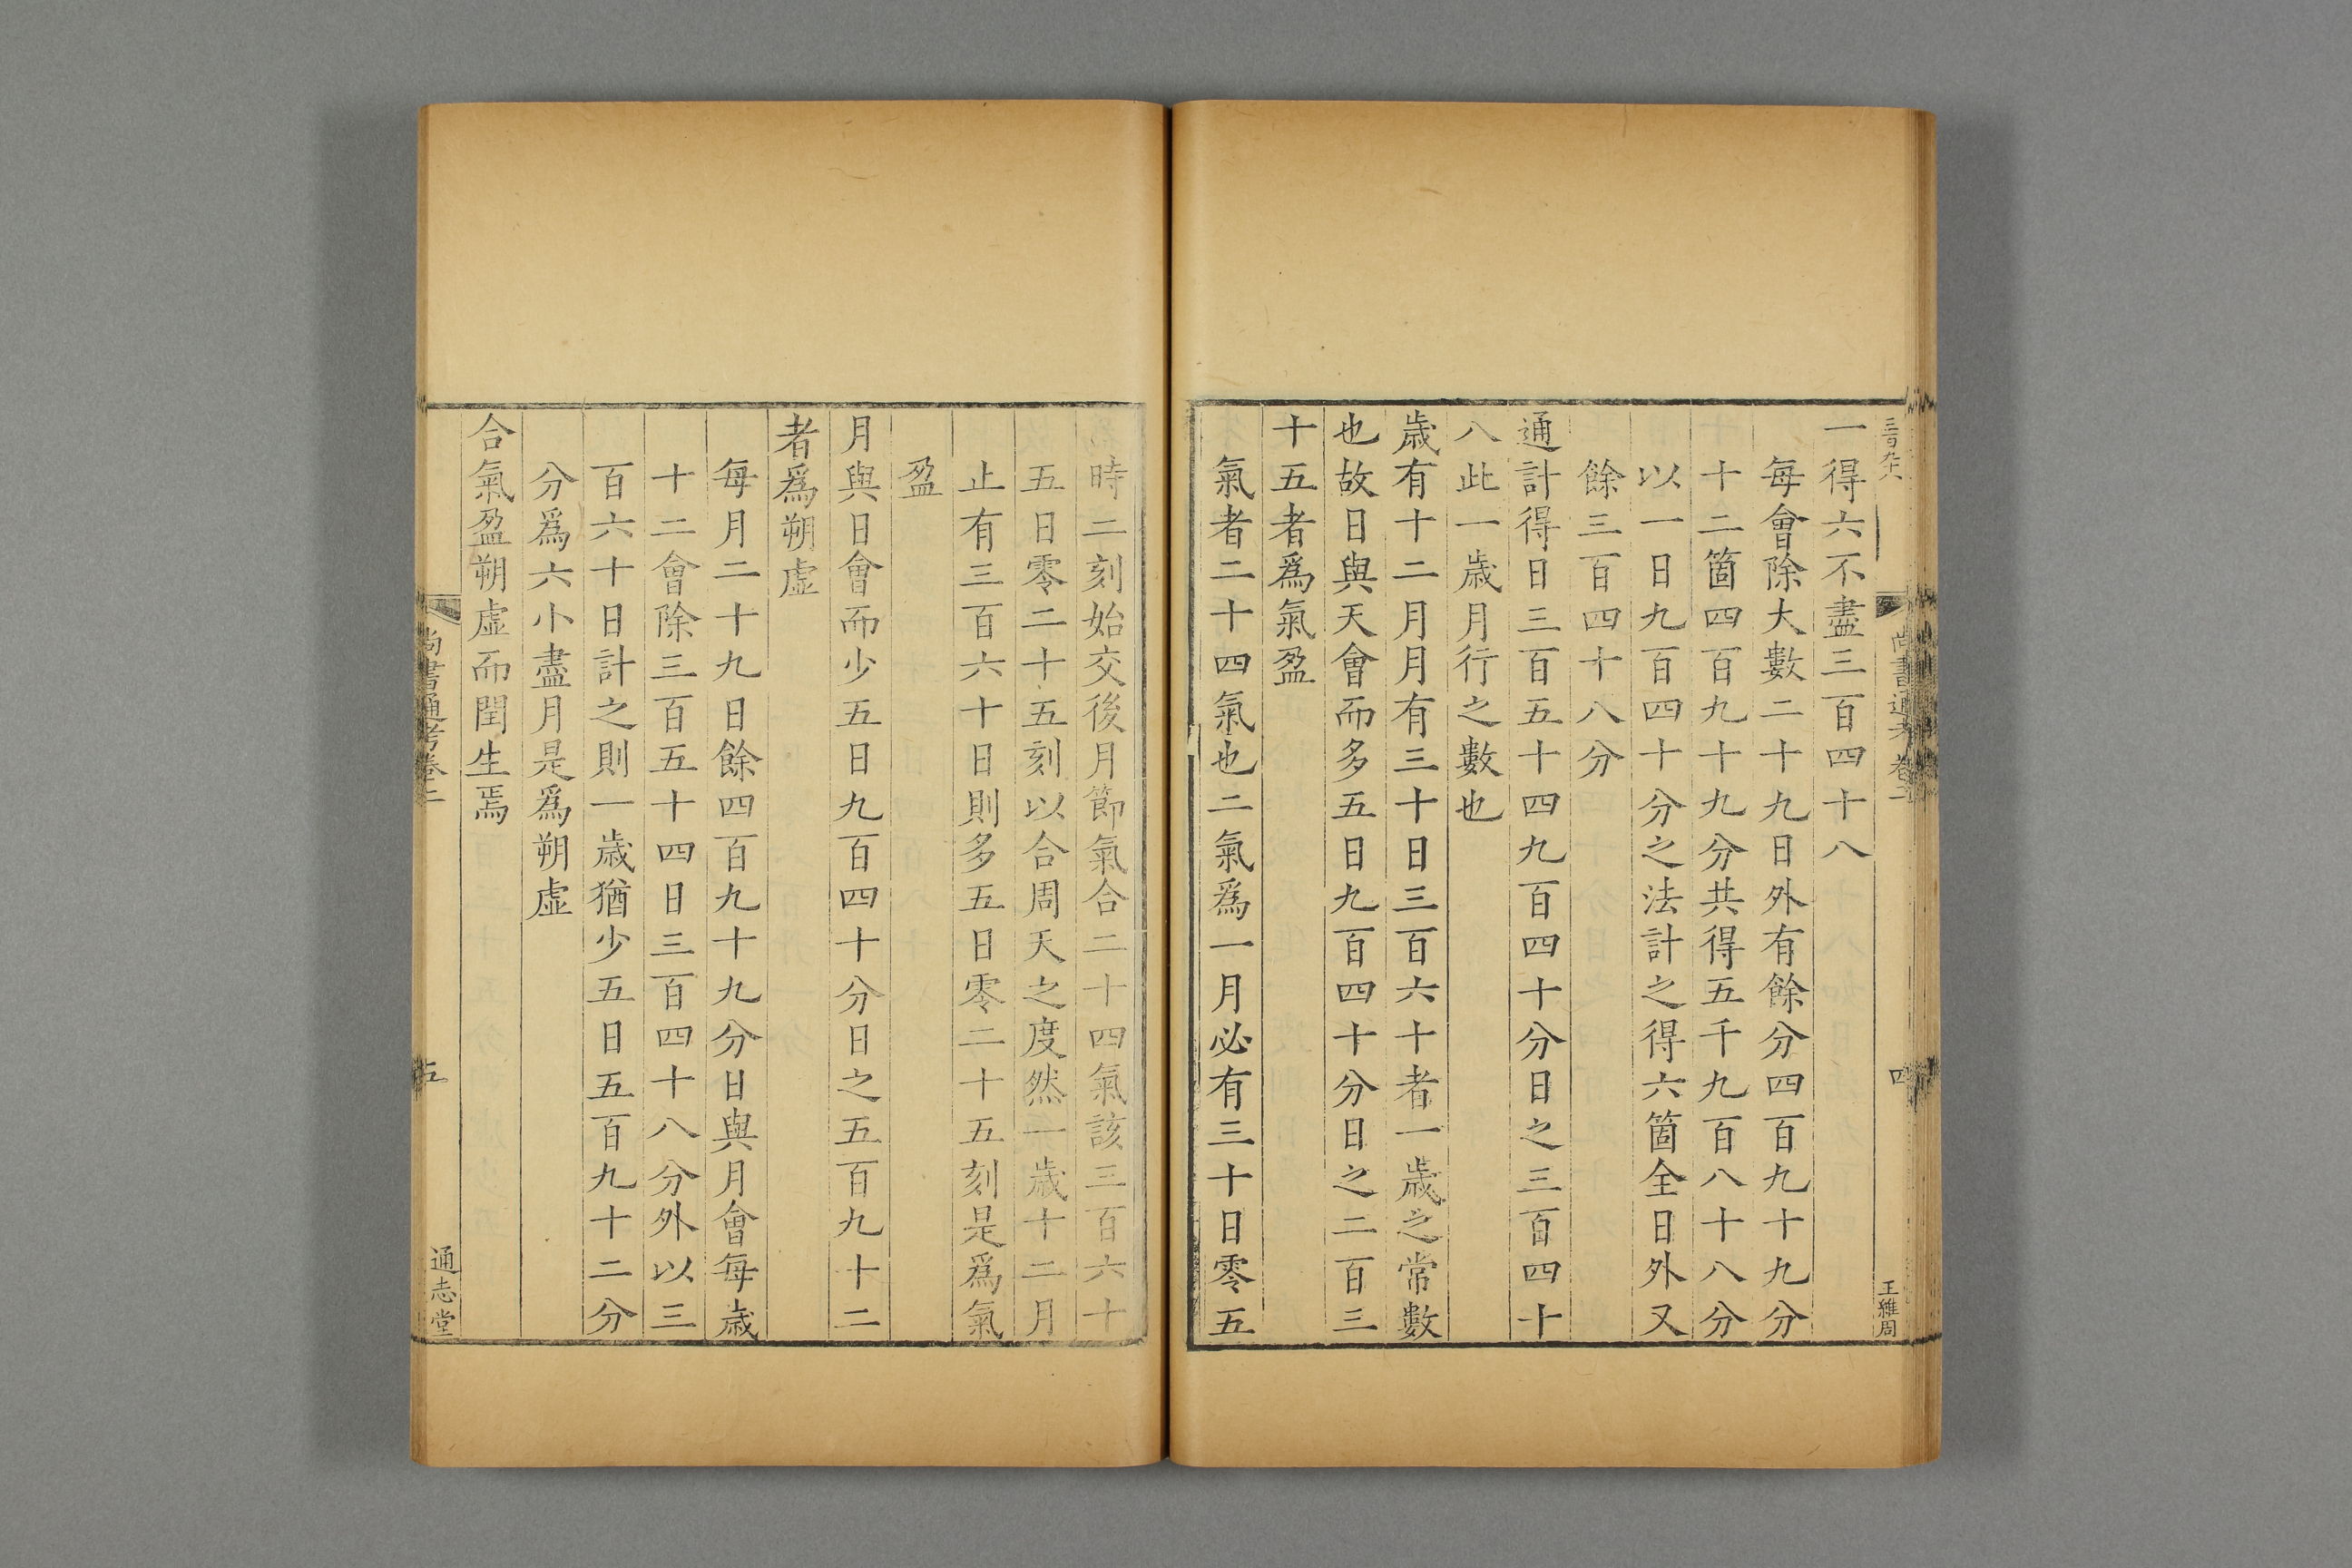 一得六不盡三百四十八
每會除大數二十九日外有餘分四百九十九分
十二箇四百九十九分共得五千九百八十八分
以一日九百四十分之法計之得六箇全日外又
餘三百四十八分
通計得日三百五十四九百四十分日之三百四十
八此一歳月行之數也
歳有十二月月有三十日三百六十者一歳之常數
也故日與天會而多五日九百四十分日之二百三
十五者爲氣盈
氣者二十四氣也二氣爲一月必有三十日零五
時二刻始交後月節氣合二十四氣該三百六十
五日零二十五刻以合周天之度然一歳十二月
止有三百六十日則多五日零二十五刻是爲氣
盈
月與日會而少五日九百四十分日之五百九十二
者爲朔虛
每月二十九日餘四百九十九分日與月會每歳
十二會除三百五十四日三百四十八分外以三
百六十日計之則一歳猶少五日五百九十二分
分爲六小盡月是爲朔虛
合氣盈朔虛而閏生焉
尚書通考卷二
四
王維周
尚書通考卷二
五
通志堂